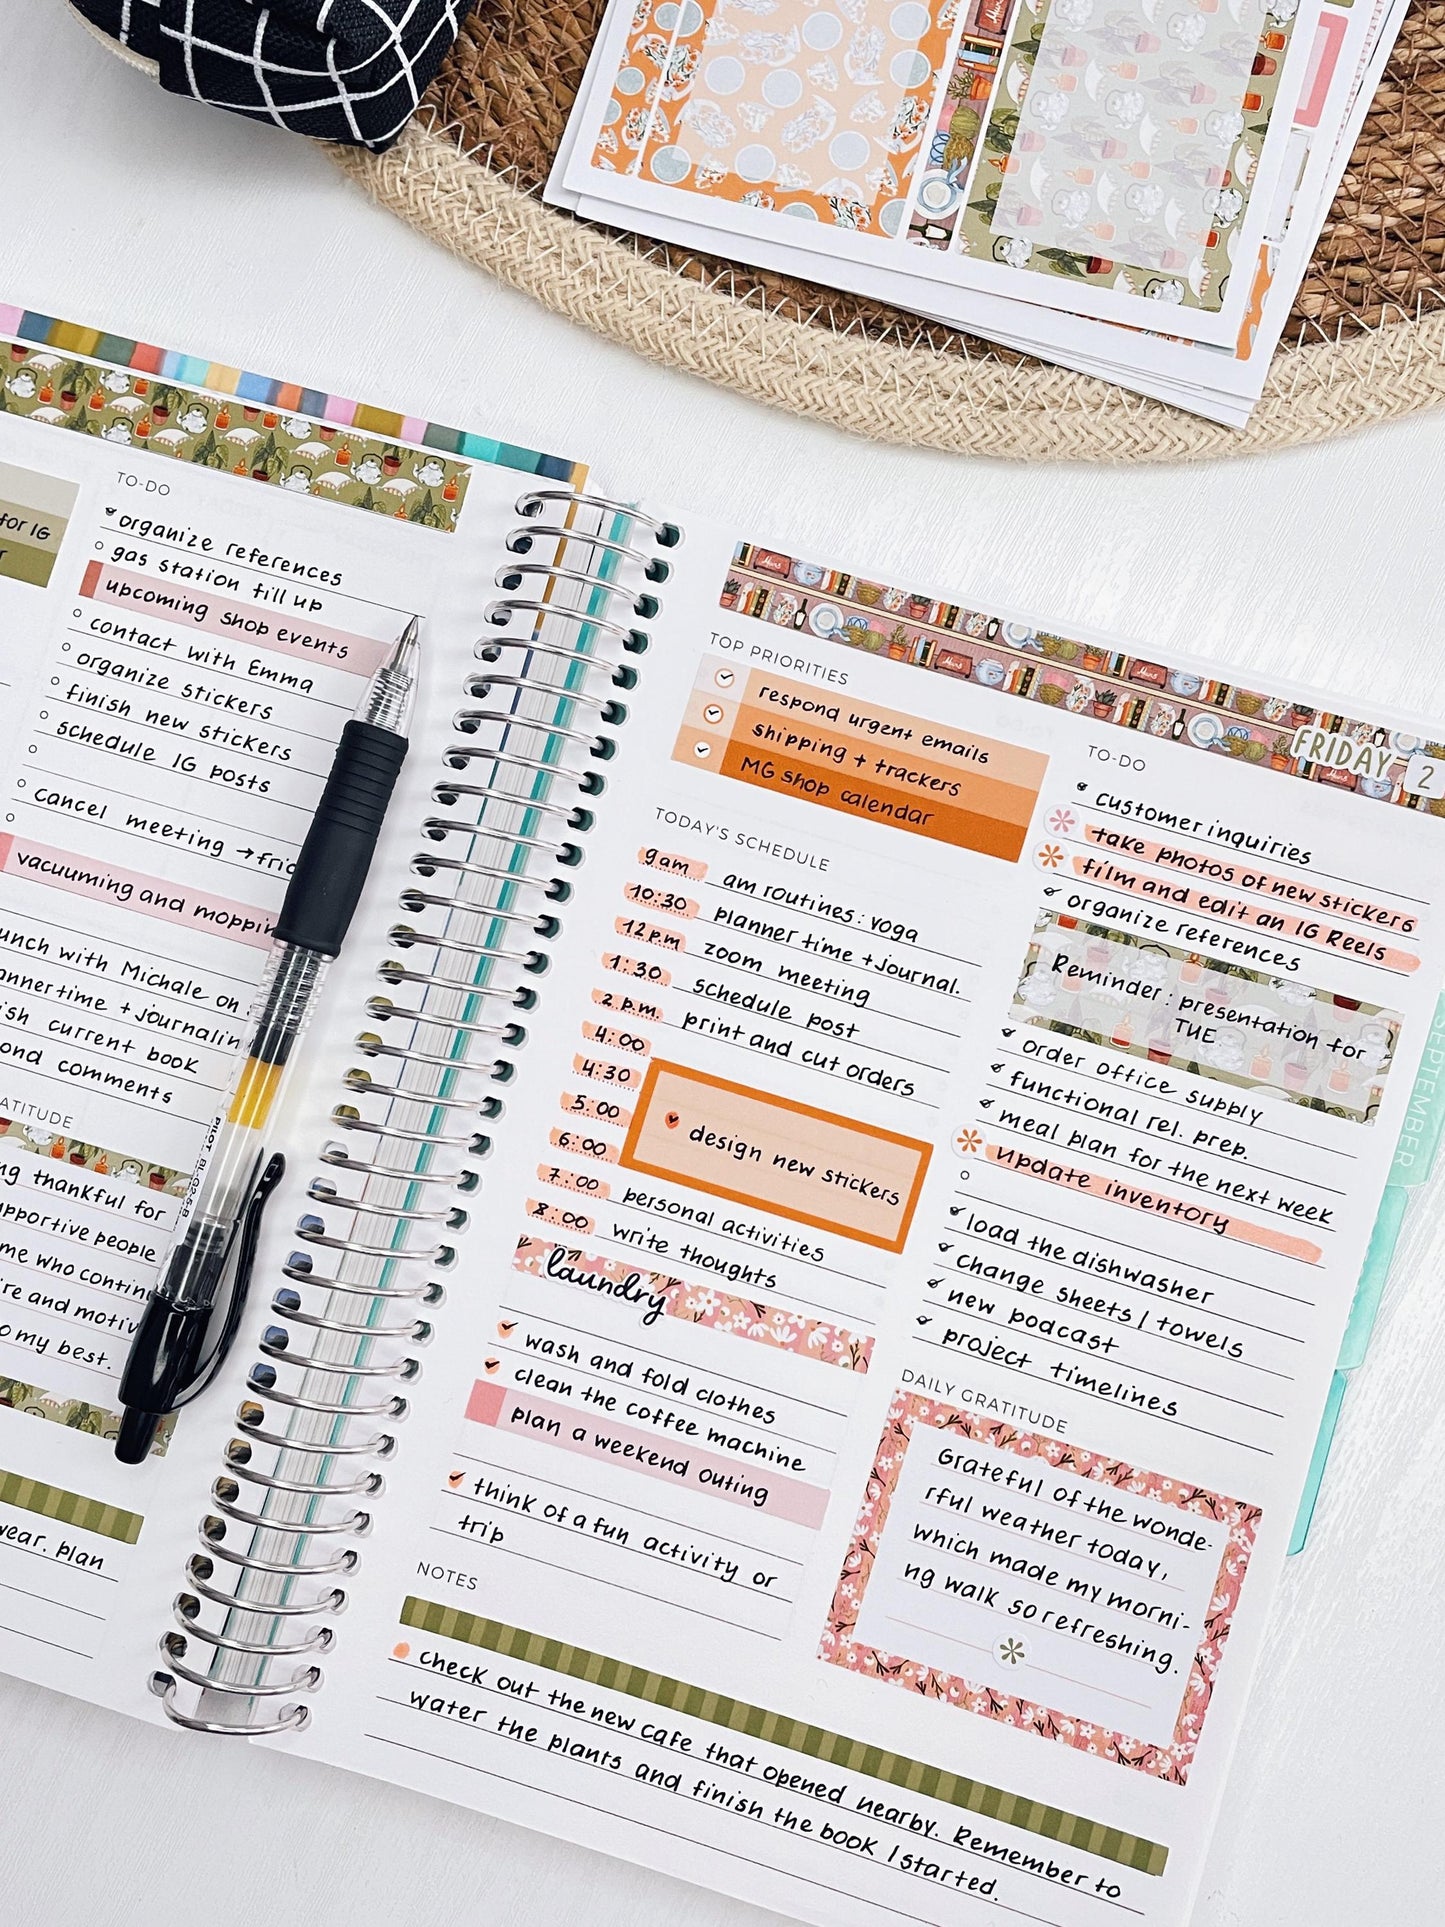 for IG
TO-DO
organize references
gas station fill up
upcoming shop events
contact with Emma
organize stickers
finish new stickers
schedule IG posts
cancel meeting → frid
vacuuming and moppin
unch with Michale on
anner time + journalin
ish current book
ond comments
ATITUDE
ng thankful for
upportive people
me who contin
re and motiv
o my best.
wear. plan
PILOT BL-G2-5-B
FRIDAY 2
TOP PRIORITIES
respond urgent emails
shipping + trackers
MG shop calendar
TODAY'S SCHEDULE
9am am routines: yoga
10:30 planner time + journal.
12pm zoom meeting
1:30 schedule post
2 p.m. print and cut orders
4:00
4:30
5:00 design new stickers
6:00
7:00 personal activities
8:00 write thoughts
laundry
wash and fold clothes
clean the coffee machine
plan a weekend outing
think of a fun activity or
trip
TO-DO
customer inquiries
take photos of new stickers
film and edit an IG Reels
organize references
Reminder: presentation for
TUE
order office supply
functional rel. prep.
meal plan for the next week
update inventory
load the dishwasher
change sheets / towels
new podcast
project timelines
DAILY GRATITUDE
Grateful of the wonde-
rful weather today,
which made my morni-
ng walk so refreshing.
NOTES
check out the new cafe that opened nearby. Remember to
water the plants and finish the book I started.
SEPTEMBER